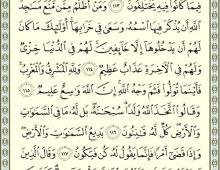 فِيمَا كَانُوا۟ فِيهِ يَخْتَلِفُونَ ١١٣ وَمَنْ أَظْلَمُ مِمَّن مَّنَعَ مَسَٰجِدَ
ٱللَّهِ أَن يُذْكَرَ فِيهَا ٱسْمُهُۥ وَسَعَىٰ فِى خَرَابِهَآ أُو۟لَٰٓئِكَ مَا كَانَ
لَهُمْ أَن يَدْخُلُوهَآ إِلَّا خَآئِفِينَ لَهُمْ فِى ٱلدُّنْيَا خِزْىٌ
وَلَهُمْ فِى ٱلْءَاخِرَةِ عَذَابٌ عَظِيمٌ ١١٤ وَلِلَّهِ ٱلْمَشْرِقُ وَٱلْمَغْرِبُ
فَأَيْنَمَا تُوَلُّوا۟ فَثَمَّ وَجْهُ ٱللَّهِ إِنَّ ٱللَّهَ وَٰسِعٌ عَلِيمٌ ١١٥
وَقَالُوا۟ ٱتَّخَذَ ٱللَّهُ وَلَدًا سُبْحَٰنَهُۥ بَل لَّهُۥ مَا فِى ٱلسَّمَٰوَٰتِ
وَٱلْأَرْضِ كُلٌّ لَّهُۥ قَٰنِتُونَ ١١٦ بَدِيعُ ٱلسَّمَٰوَٰتِ وَٱلْأَرْضِ
وَإِذَا قَضَىٰٓ أَمْرًا فَإِنَّمَا يَقُولُ لَهُۥ كُن فَيَكُونُ ١١٧ وَقَالَ ٱلَّذِينَ